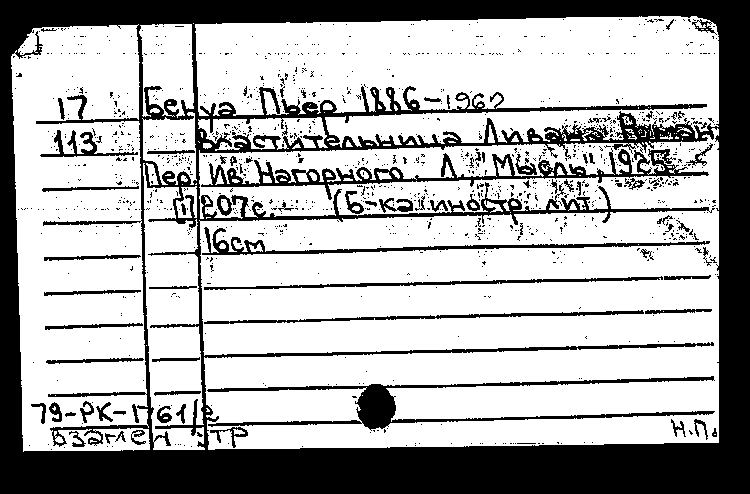 17 Бенуа, Пьер, 1886-1962
113 Властительница Ливана. Роман.
Пер. Ив. Нагорного. Л., "Мысль", 1925.
[1] 207с. - (Б-ка иностр. лит.)
16см
79-РК-1761/2
взамен утр
Н.П.